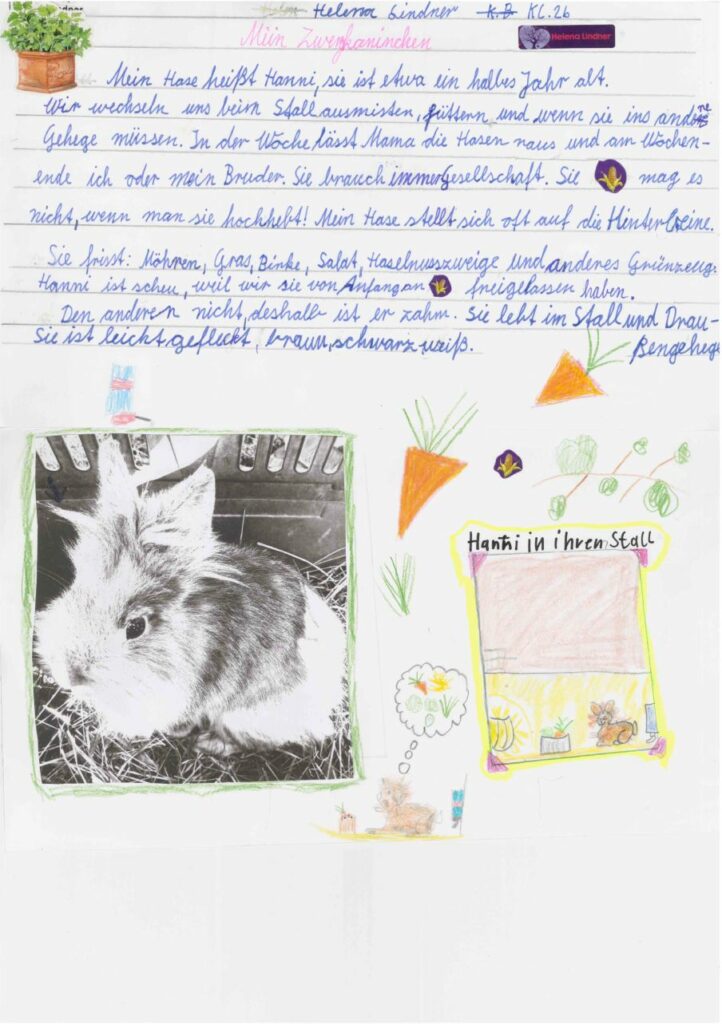 Helena Lindner K.B Kl. 2b
Mein Zwergkaninchen
Helena Lindner
Mein Hase heißt Hanni, sie ist etwa ein halbes Jahr alt.
Wir wechseln uns beim Stall ausmisten, füttern und wenn sie ins andere
Gehege müssen. In der Woche lässt Mama die Hasen naus und am Wochen-
ende ich oder mein Bruder. Sie brauch immer Gesellschaft. Sie mag es
nicht, wenn man sie hochhebt! Mein Hase stellt sich oft auf die Hinterbeine.
Sie frisst: Möhren, Gras, Binke, Salat, Haselnusszweige und anderes Grünzeug.
Hanni ist scheu, weil wir sie von Anfang an freigelassen haben.
Den anderen nicht, deshalb ist er zahm. Sie lebt im Stall und Drau-
ßengehege
Sie ist leicht gefleckt, braun, schwarz, weiß.
Hanni in ihren Stall